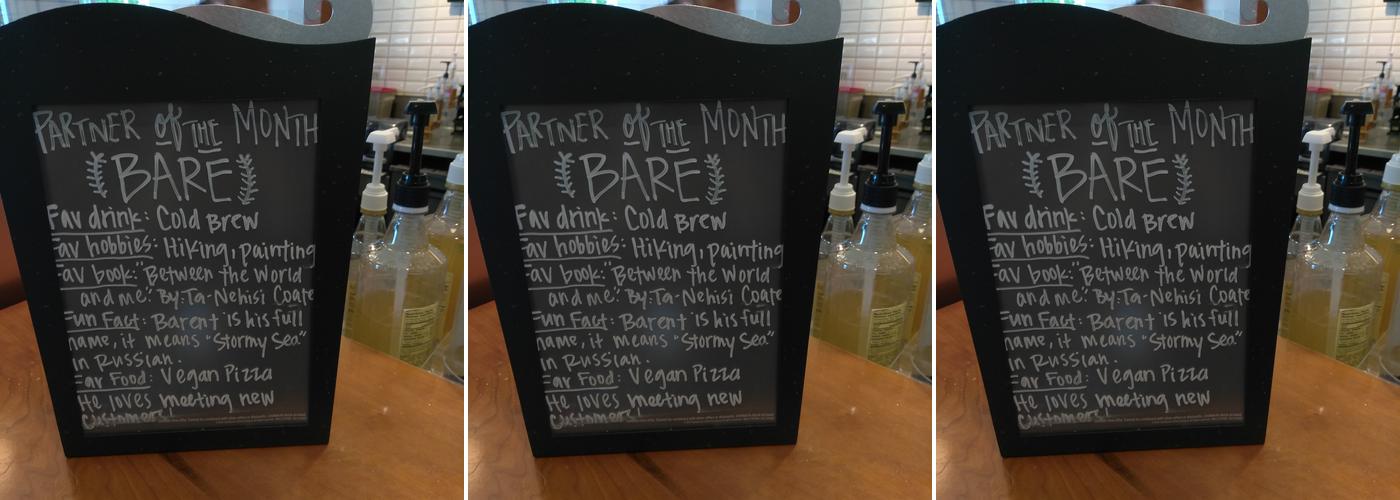 PARTNER of THE MONTH
BARE
Fav drink: Cold Brew
Fav hobbies: Hiking, painting
Fav book: "Between the World
and me." By: Ta-Nehisi Coate
Fun Fact: Barent is his full
name, it means "Stormy Sea"
in Russian.
Fav Food: Vegan Pizza
He loves meeting new
Customers!
PARTNER of THE MONTH
BARE
Fav drink: Cold Brew
Fav hobbies: Hiking, painting
Fav book: "Between the World
and me." By: Ta-Nehisi Coate
Fun Fact: Barent is his full
name, it means "Stormy Sea"
in Russian.
Fav Food: Vegan Pizza
He loves meeting new
Customers!
PARTNER of THE MONTH
BARE
Fav drink: Cold Brew
Fav hobbies: Hiking, painting
Fav book: "Between the World
and me." By: Ta-Nehisi Coate
Fun Fact: Barent is his full
name, it means "Stormy Sea"
in Russian.
Fav Food: Vegan Pizza
He loves meeting new
Customers!